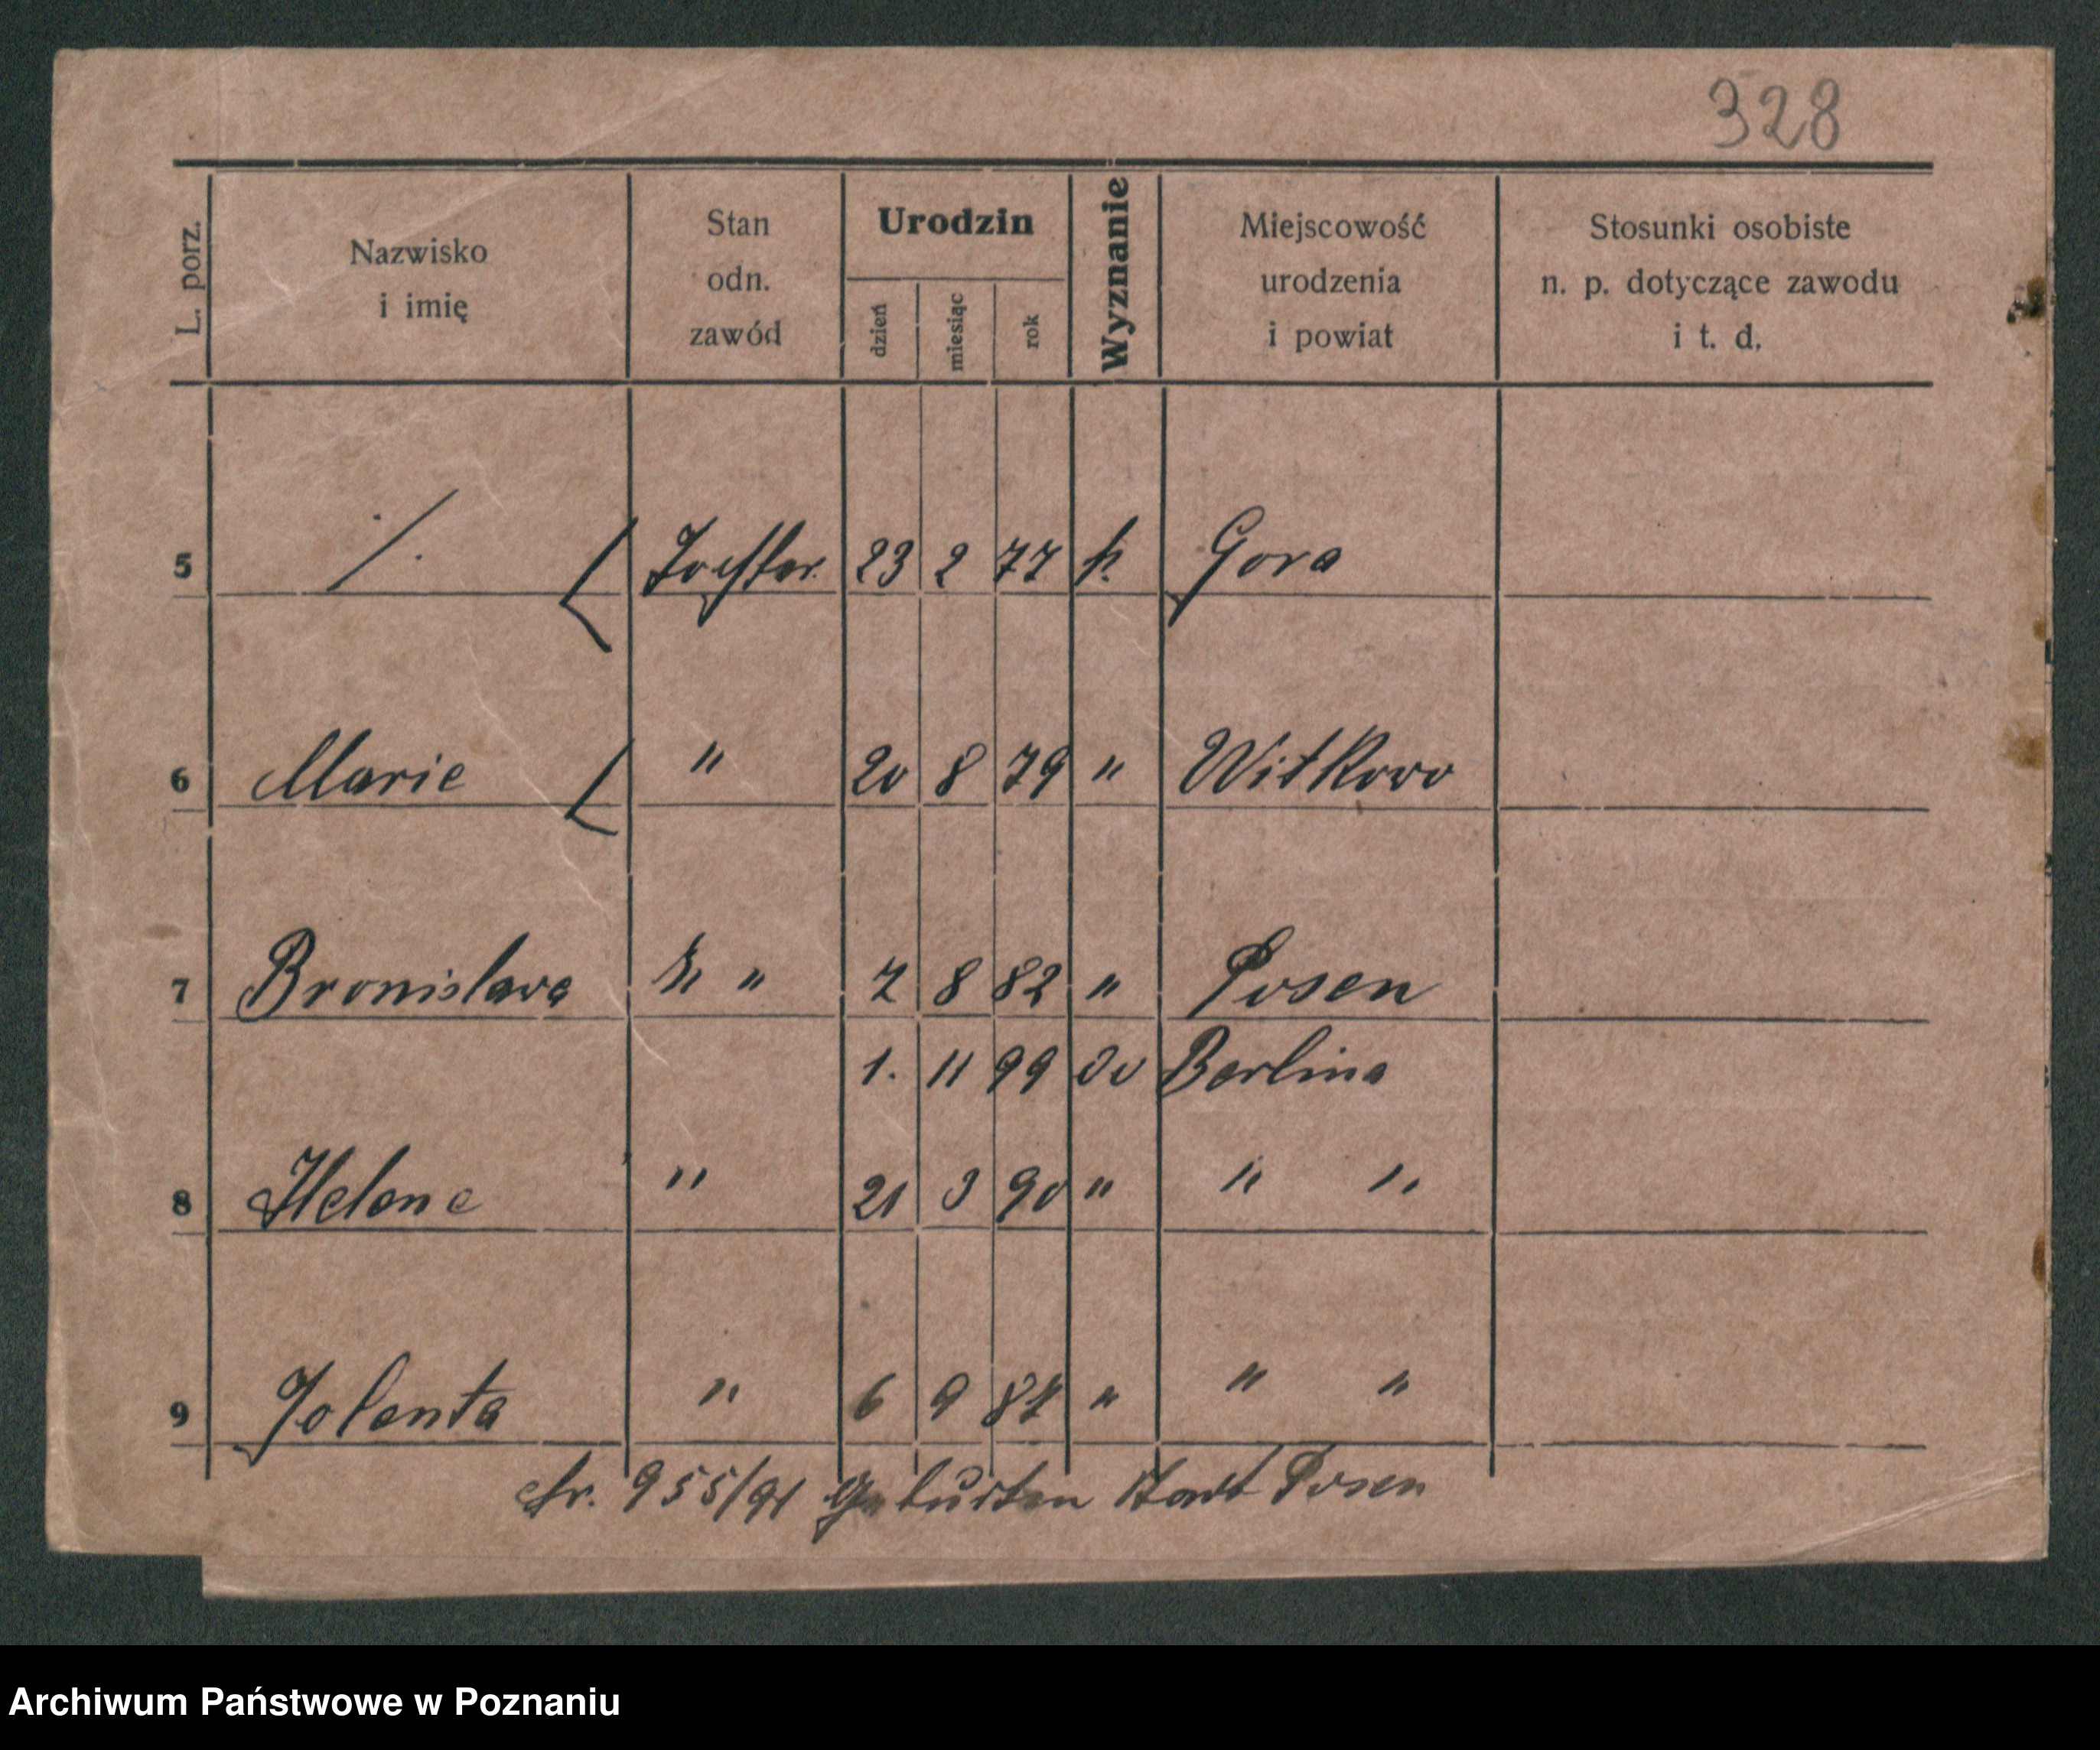 328
L. porz. Nazwisko i imię Stan odn. zawód Urodzin dzień miesiąc rok Wyznanie Miejscowość urodzenia i powiat Stosunki osobiste n. p. dotyczące zawodu i t. d.
5 ·/. Tochter 23 2 77 k. Gora
6 Marie " 20 8 79 " Witkowo
7 Bronislava " 7 8 82 " Posen
1. 11 99 Berlina
8 Helene " 21 3 90 " " "
9 Jolenta " 6 9 87 " " "
cfr. 955/91 Geburten Stadt Posen
Archiwum Państwowe w Poznaniu